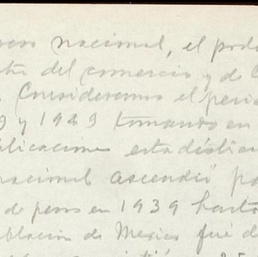 nacional, el pod
del comercio y de C
Consideremos el peri
9 y 1949 tomando en
blicaciones estadísti
nacional ascendió" po
de pesos en 1939 hasta
blación de Mexico fué d